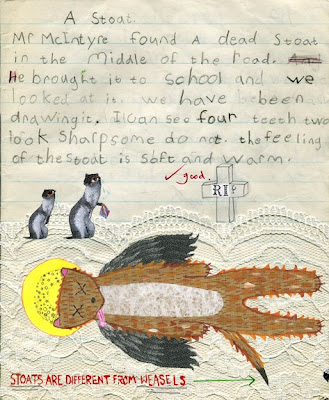 A Stoat.
Mr McIntyre found A dead Stoat
in the Middle of the road.
He brought it to school and we
looked at it. we have bebeen
drawing it. I can see four teeth two
look sharp some do not. the feeling
of the stoat is soft and warm.
good.
RIP
STOATS ARE DIFFERENT FROM WEASELS